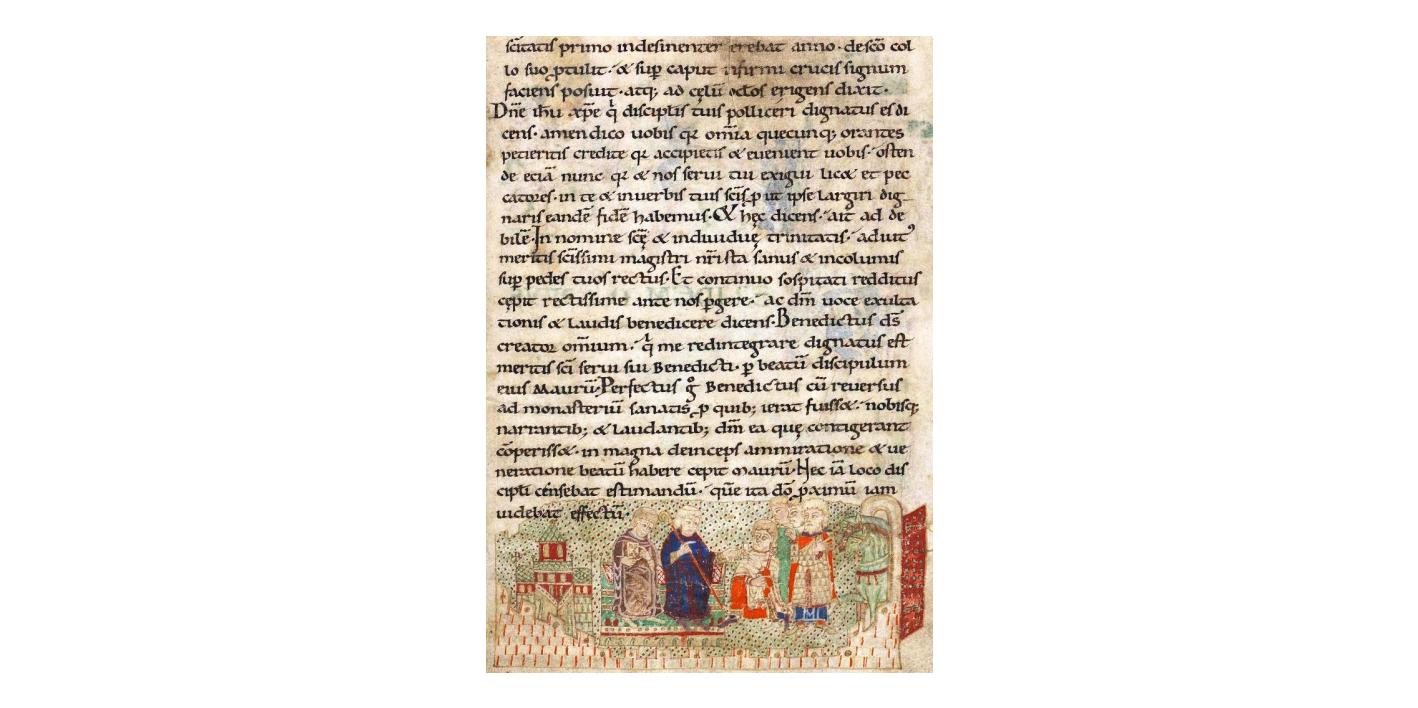 sc̄itatis primo indesinenter erebat anno · desc̄o col
lo suo p̱tulit · & suꝑ caput infirmi crucis signum
faciens posuit · atq; ad cęlū oc̄los erigens dixit ·
Dn̄e ih̄u xp̄e q̇ discipl̄is tuis polliceri dignatus es di
cens · amen dico uobis qꝛ om̄ia quecunq; orantes
petieritis credite qꝛ accipietis & euenient uobis · osten
de etiā nunc qꝛ & nos serui tui exigui lic& et pec
catores · in te & in uerbis tuis sc̄is ꝓ ut ipse largiri dig
naris eandē fidē habemus · & hęc dicens · ait ad de
bilē · In nomine sc̄ę & indiuiduę trinitatis · adiut᾿
meritis sc̄issimi magistri nr̄i sta sanus & incolumis
suꝑ pedes tuos rectus · Et continuo sospitati redditus
cępit rectissime ante nos ꝑgere · ac dm̄ uoce exulta
tionis & laudis benedicere dicens · Benedictus ds̄
creator om̄ium · q̇ me redintegrare dignatus est
meritis sc̄i serui sui Benedicti · ꝑ beatū discipulum
eius Maurū · Perfectus g̊ Benedictus cū reuersus
ad monasteriū sanatis ꝓ quib; ierat fuiss& · nobisq;
narrantib; & laudantib; dm̄ ea quę contigerant
cōperiss& · in magna deinceps ammiratione & ue
neratione beatū habere cepit Maurū · Hec iā loco dis
cipl̄i cēnsebat estimandū · quē ita dō ꝓximū iam
uidebat effectū ·